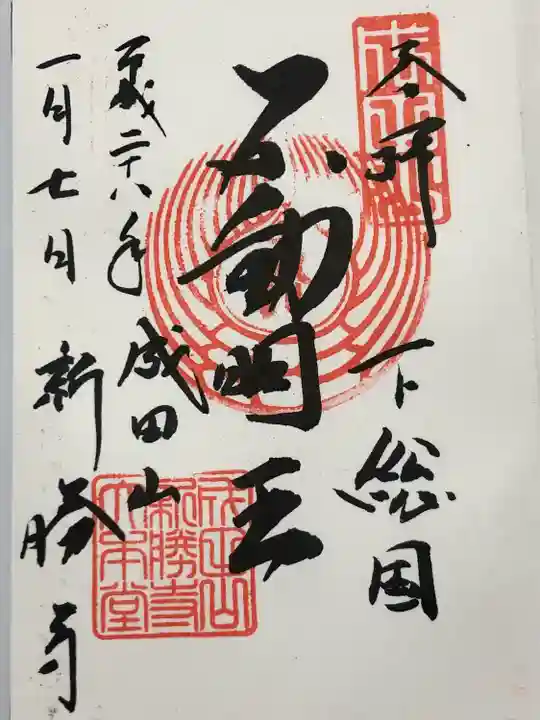 奉拝
下総国
不動明王
平成二十八年 成田山
一月七日 新勝寺
成田山
新勝寺
大本堂